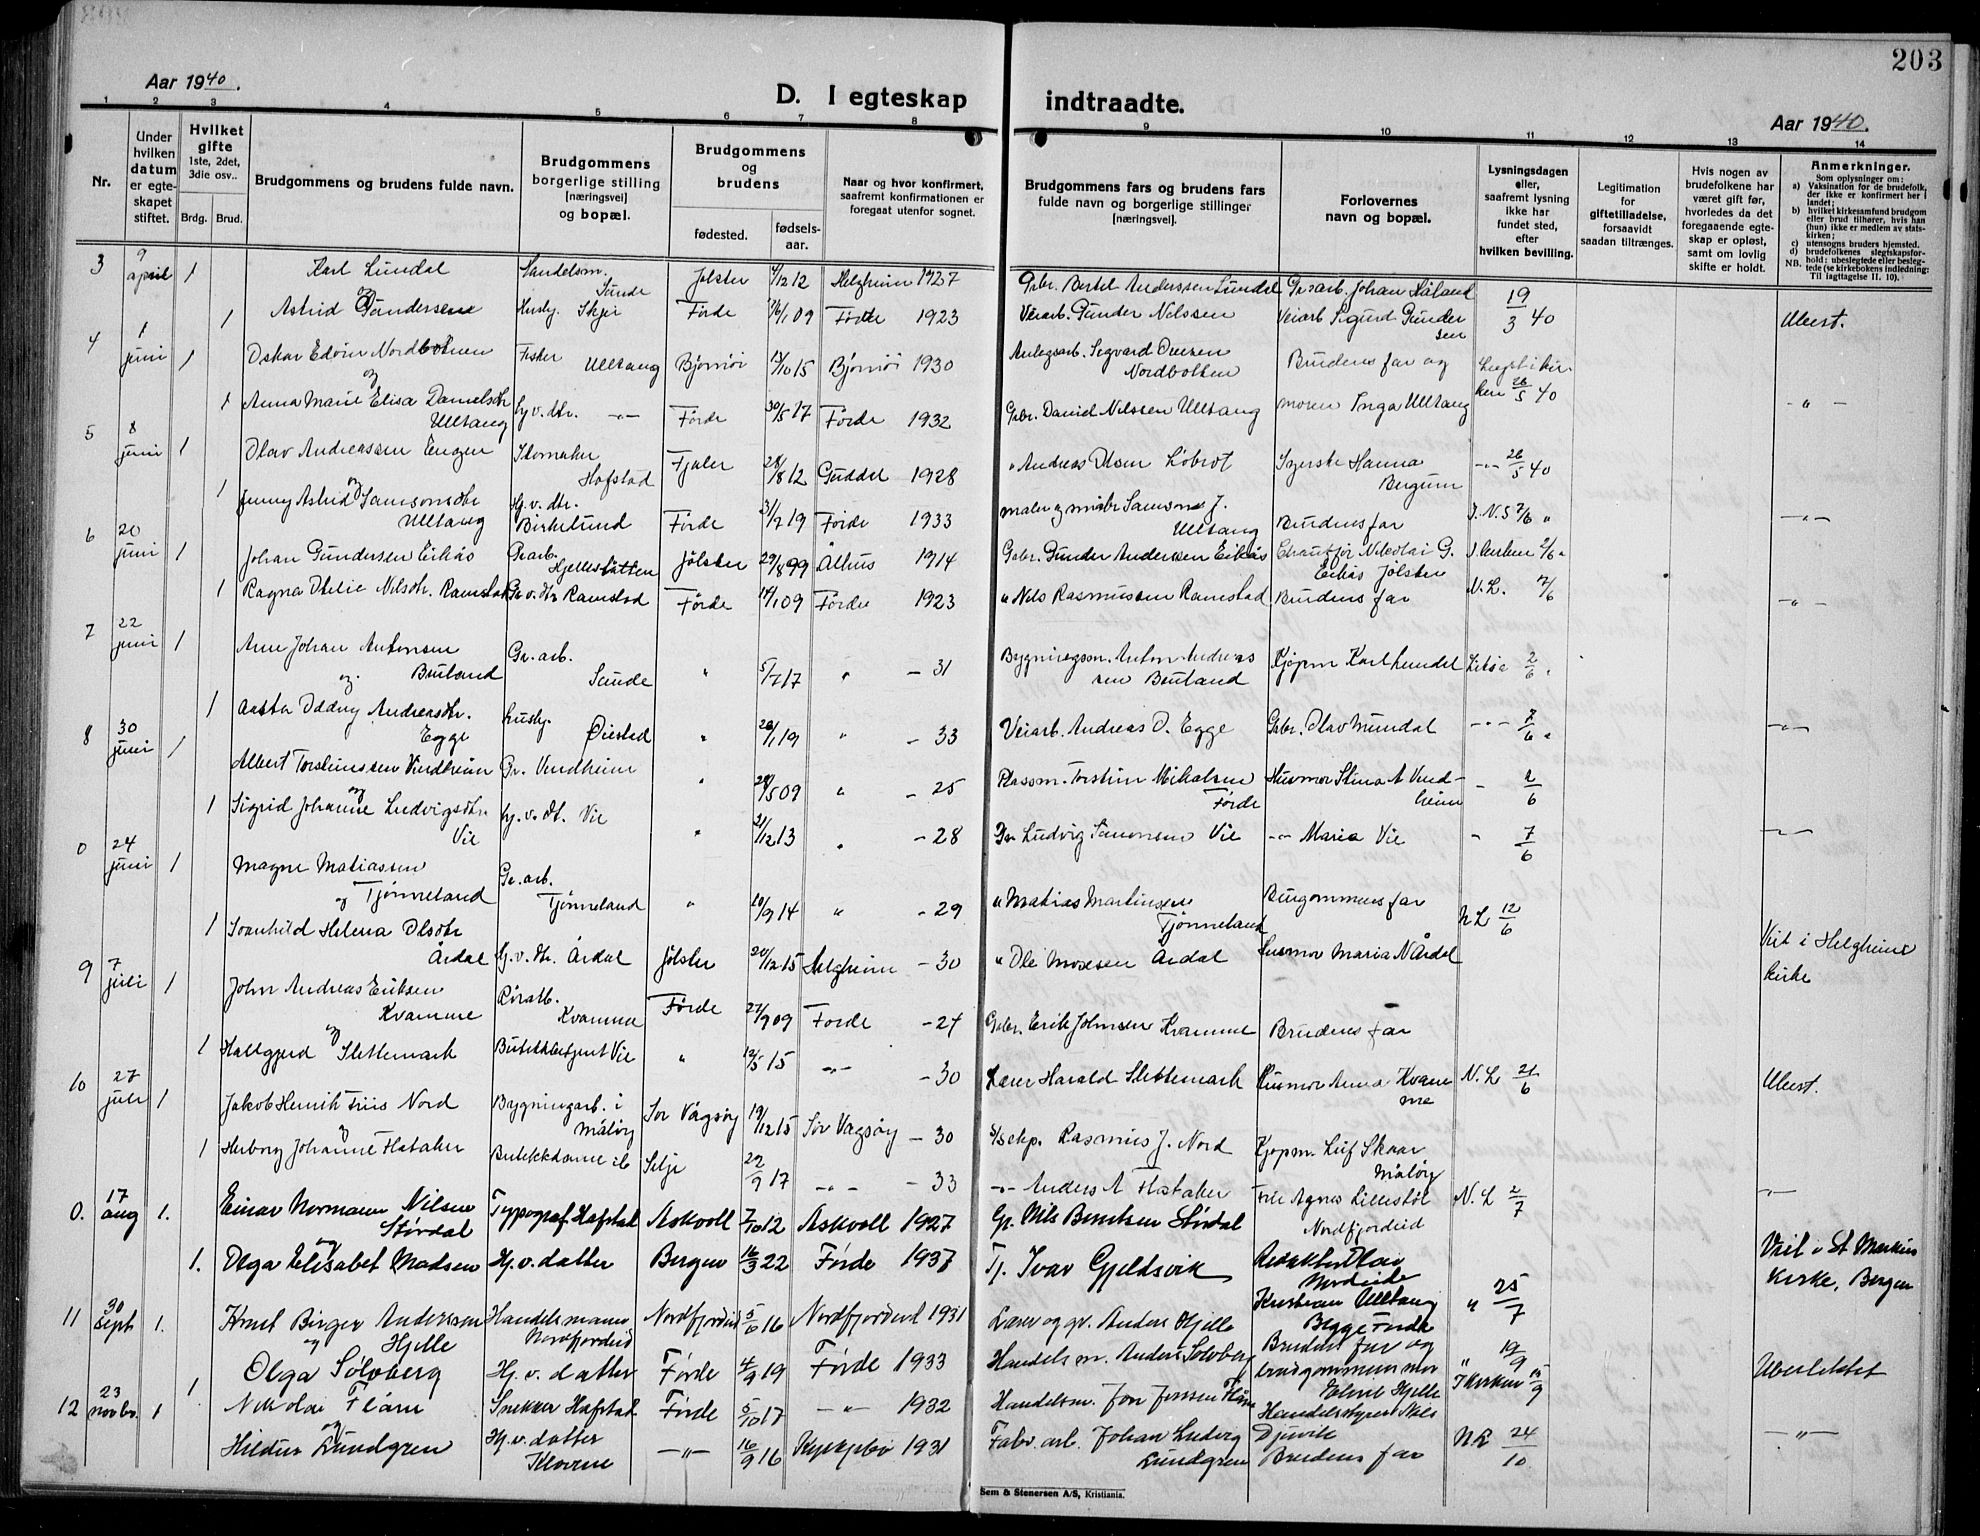 203
Aar 1940.
D. I egteskap indtraadte.
Aar 1940.
1 2 3 4 5 6 7 8 9 10 11 12 13 14
Nr.
Under hvilken datum er egteskapet stiftet.
Hvilket gifte 1ste, 2det, 3die osv..
Brdg. Brud.
Brudgommens og brudens fulde navn.
Brudgommens borgerlige stilling [næringsvei] og bopæl.
Brudgommens og brudens
fødested. fødsels-aar.
Naar og hvor konfirmert, saafremt konfirmationen er foregaat utenfor sognet.
Brudgommens fars og brudens fars fulde navn og borgerlige stillinger [næringsvei].
Forlovernes navn og bopæl.
Lysningsdagen eller, saafremt lysning ikke har fundet sted, efter hvilken bevilling.
Legitimation for giftetilladelse, forsaavidt saadan tiltrænges.
Hvis nogen av brudefolkene har været gift før, hvorledes da det foregaaende egteskap er opløst, samt om lovlig skifte er holdt.
Anmerkninger.
Som oplysninger om:
a) Vaksination for de brudefolk, der ikke er konfirmert her i landet;
b) hvilket kirkesamfund brudgom eller brud tilhører, hvis han (hun) ikke er medlem av statskirken;
c) utensogns bruders hjemsted.
d) brudefolkenes slegtskapsforhold: ubeslegtede eller beslegtede (se kirkebokens indledning: Til iagttagelse II. 10).
NB.
3 9 april 1 Karl Lundal Handelsm. Sunde Jølster 4/12 12 Helgheim 1927 Gbr. Bertel Anderssen Lundal Gr.arb. Johan Håland 19/3 40
og
1 Astrid Gundersen Husby. Skjer Førde 16/1 09 Førde 1923 Veiarb. Gunder Nilssen Veiarb Sigurd Gundersen Ubest.
4 1 juni 1 Oskar Edvin Nordbotnen Fisker Ulltang Bjørnøi 13/10 15 Bjørnøi 1930 Anlegsarb. Segvard Nordbotten Brudens far og
og
1 Anna Marie Elisa Danielsdtr Ulltang hj. v. dtr. -"- Førde 30/5 17 Førde 1932 Gbr. Daniel Nilssen Ulltang moren Inga Ulltang 26/5 40 -"-
5 8 juni 1 Olav Andreassen Engen Skomaker Hafstad Fjaler 28/8 12 Guddal 1928 " Andreas Olsen Løbrot Syerske Hanna Bergum -"- 26/5 40
og
1 Jenny Astrid Samsonsdtr Ulltang Hj. v. dtr. Birkelund Førde 31/7 19 Førde 1933 maler og Samson J. Ulltang Brudens far -"-
6 20 juni 1 Johan Gundersen Eikås Gr.arb. Hjellesletten Jølster 29/8 99 Ålhus 1914 Gbr. Gunder Andersen Eikås Chauffør Nikolai G. Eikås Jølster 2/6 "
1 Ragna Otelie Nilsdtr. Ramstad Gr v. dtr Ramstad Førde 14/1 09 Førde 1923 " Nils Rasmussen Ramstad Brudens far N. L. 7/6 -"-
7 22 juni 1 Arne Johan Antonsen Bruland Gr. arb. Sunde " 5/7 17 " - 31 Bygningsm. Anton Andreassen Bruland Kjøpm Karl Lundal 2/6
og
1 Aasta Oddny Andreasdtr. Egge Husby. Øiestad " 28/1 19 " - 33 Veiarb. Andreas O. Egge Gbr. Olav Mundal -"- 7/6 -"-
8 30 juni 1 Albert Torsteinssen Vindheim Gr. Vindheim " 28/5 09 " - 25 Plassm. Torstein Mikalsen Førde Husmor Stina A Vindheim - 2/6
og
1 Sigrid Johanne Ludvigsdtr. Vie hj. v. dt. Vie " 21/12 13 " - 28 Gr Ludvig Simonsen Vie -"- Maria Vie - 7/6 -"-
0 24 juni 1 Magne Matiassen Tjønneland Gr. arb. Tjønneland " 10/9 14 " - 29 " Matias Martinssen Tjønneland Burgommens far N L 12/6
og
1 Svanhild Helena Olsdtr Årdal Hj. v. dtr. Årdal Jølster 20/12 15 Helgheim - 30 " Ole Mosesen Årdal Husmor Maria N Årdal Viet i Helgheim kirke
9 7 juli 1 John Andreas Eriksen Kvamme Rørarb. Kvamme Førde 27/9 09 Førde - 24 Gbr. Erik Johnsen Kvamme Brudens far
og
1 Hallgjerd Slettemark Butikkbetjent Vie " 12/5 15 -"- - 30 Lærer Harald Slettemark Husmor Anna Kvamme N. L 21/6 Ubest.
10 27 juli 1 Jakob Henrik Friis Nord Bygningarb. i Måløy Sør Vågsøy 19/12 15 Sør Vågsøy - 30 Rasmus J. Nord Kjøpm. Leif Skaar Måløy
og
1 Herborg Johanne Flataker Butikkdame Selje 22/9 17 -"- - 33 -"- Anders A Flataker Agnes Lillestøl Nordfjordeid N. L 2/7 -"-
0. 17 aug 1. Einar Normann Nilsen Størdal Typograf, Hafstad Askvoll 7/10 12 Askvoll 1927 Gr. Nils Berntsen Størdal Redaktør Olav Nordeide
og
1. Olga Elisabet Madsen Hj. v. datter Bergen 16/3 22 Førde 1937 Tj. Ivar Gjeldsvik Kristian Ulltang Begge Førde " 25/7 Viet i St Markus Kirke, Bergen
11 30 sept 1. Knut Birger Anderssen Hjelle Handelsmann Nordfjordeid Nordfjordeid 5/6 16 Nordfjordeid 1931 Lærer og gr. Anders Hjelle Brudens far og " 19/9
og
1 Olga Solvberg Hj. v. datter Førde 4/9 19 Førde 1933 Handelsm. Anders Solvberg brudgommens mor Eline Hjelle I kirken 15/9 Ubeslektet
12 23 novbr. 1 Nikolai Flåm Snekker Hafstad Førde 5/10 17 -"- 1932 Handelsm. Jon Jonssen Flåm Handelsstyrer Nils Djuvik
og
Hildur Lundgren Hj. v. datter Klovene -"- 16/9 16 1931 Fabr. arb. Johan Ludvig Lundgren Brudens far N L 24/10 -"-
Sem & Stenersen A/S, Kristiania.